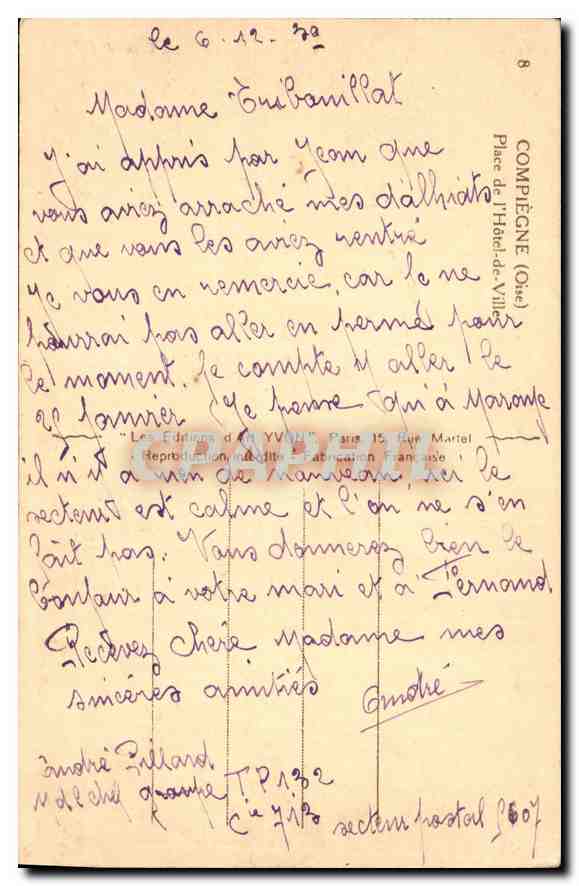 le 6-12-39
Madame Tribouillat
J'ai appris par Jean que
vous aviez arraché mes dalhiats
et que vous les aviez rentré
Je vous en remercie, car le ne
pourrai pas aller en permé pour
le moment. Je compte y aller le
Janvier Je pense qu'à
il n'y a rien de nouveau, ici le
secteur est calme et l'on ne s'en
fait pas. Vous donnerez bien le
bonjour à votre mari et à Fernand.
Recevez Chère Madame mes
sincères amitiés
André
André Pillard
Mdlchef groupe TP 132
Cie 713
secteur postal 5607
8
COMPIÈGNE (Oise)
Place de l'Hôtel-de-Ville
"Les Editions d'Art YVON" Paris, 15, Rue Martel
Reproduction interdite - Fabrication Française
CPAPHIL